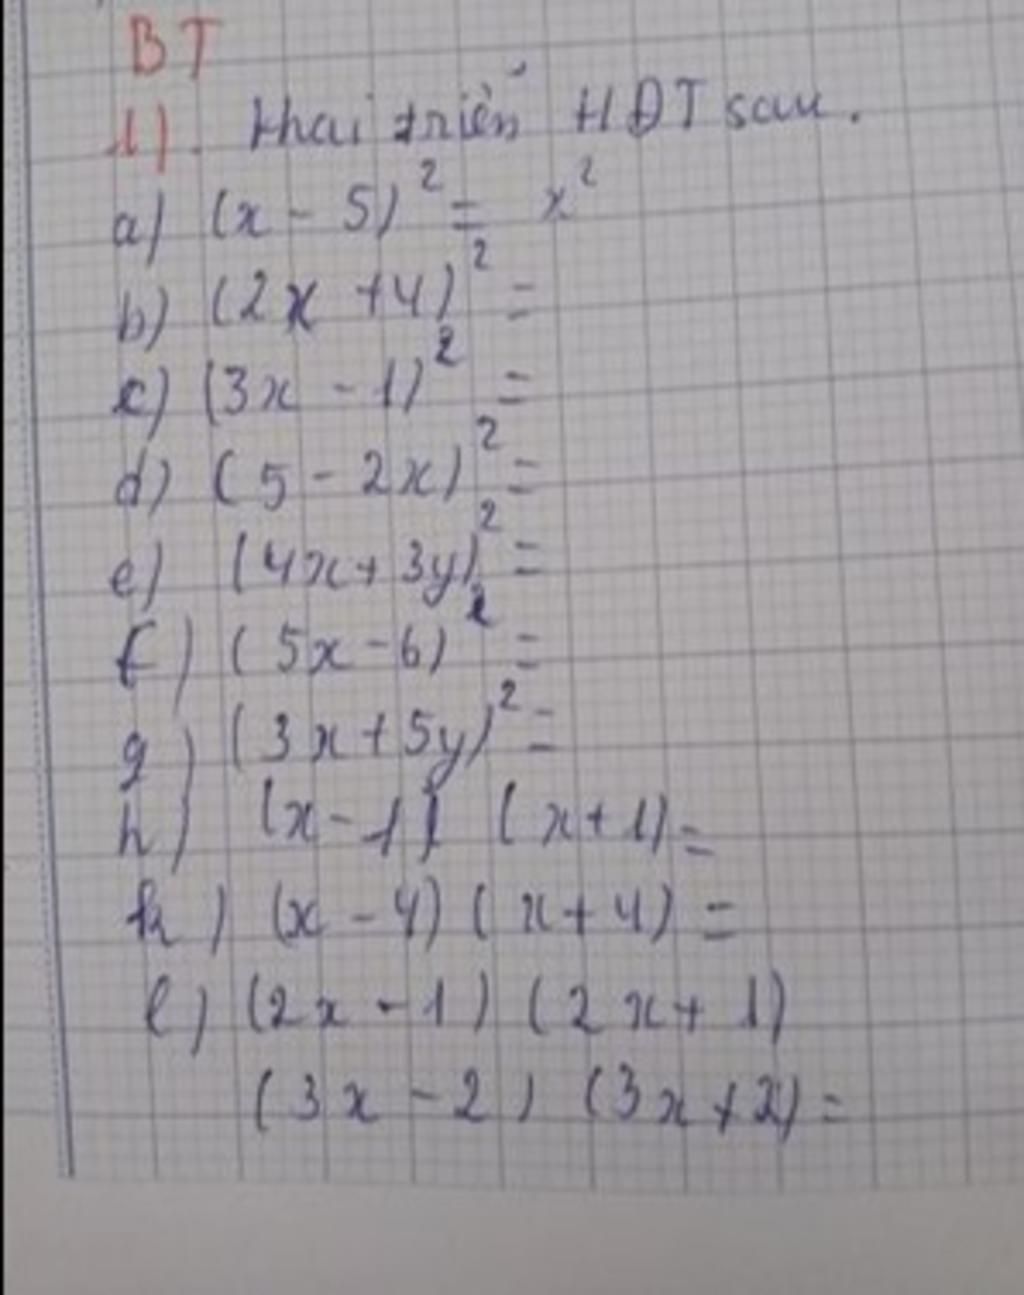 BT
1). Khai triển HĐT sau.
a) (x - 5)² = x²
b) (2x + 4)² =
c) (3x - 1)² =
d) (5 - 2x)² =
e) (4x + 3y)² =
f) (5x - 6)² =
g) (3x + 5y)² =
h) (x - 1) (x + 1) =
k) (x - 4) (x + 4) =
l) (2x - 1) (2x + 1)
(3x - 2) (3x + 2) =